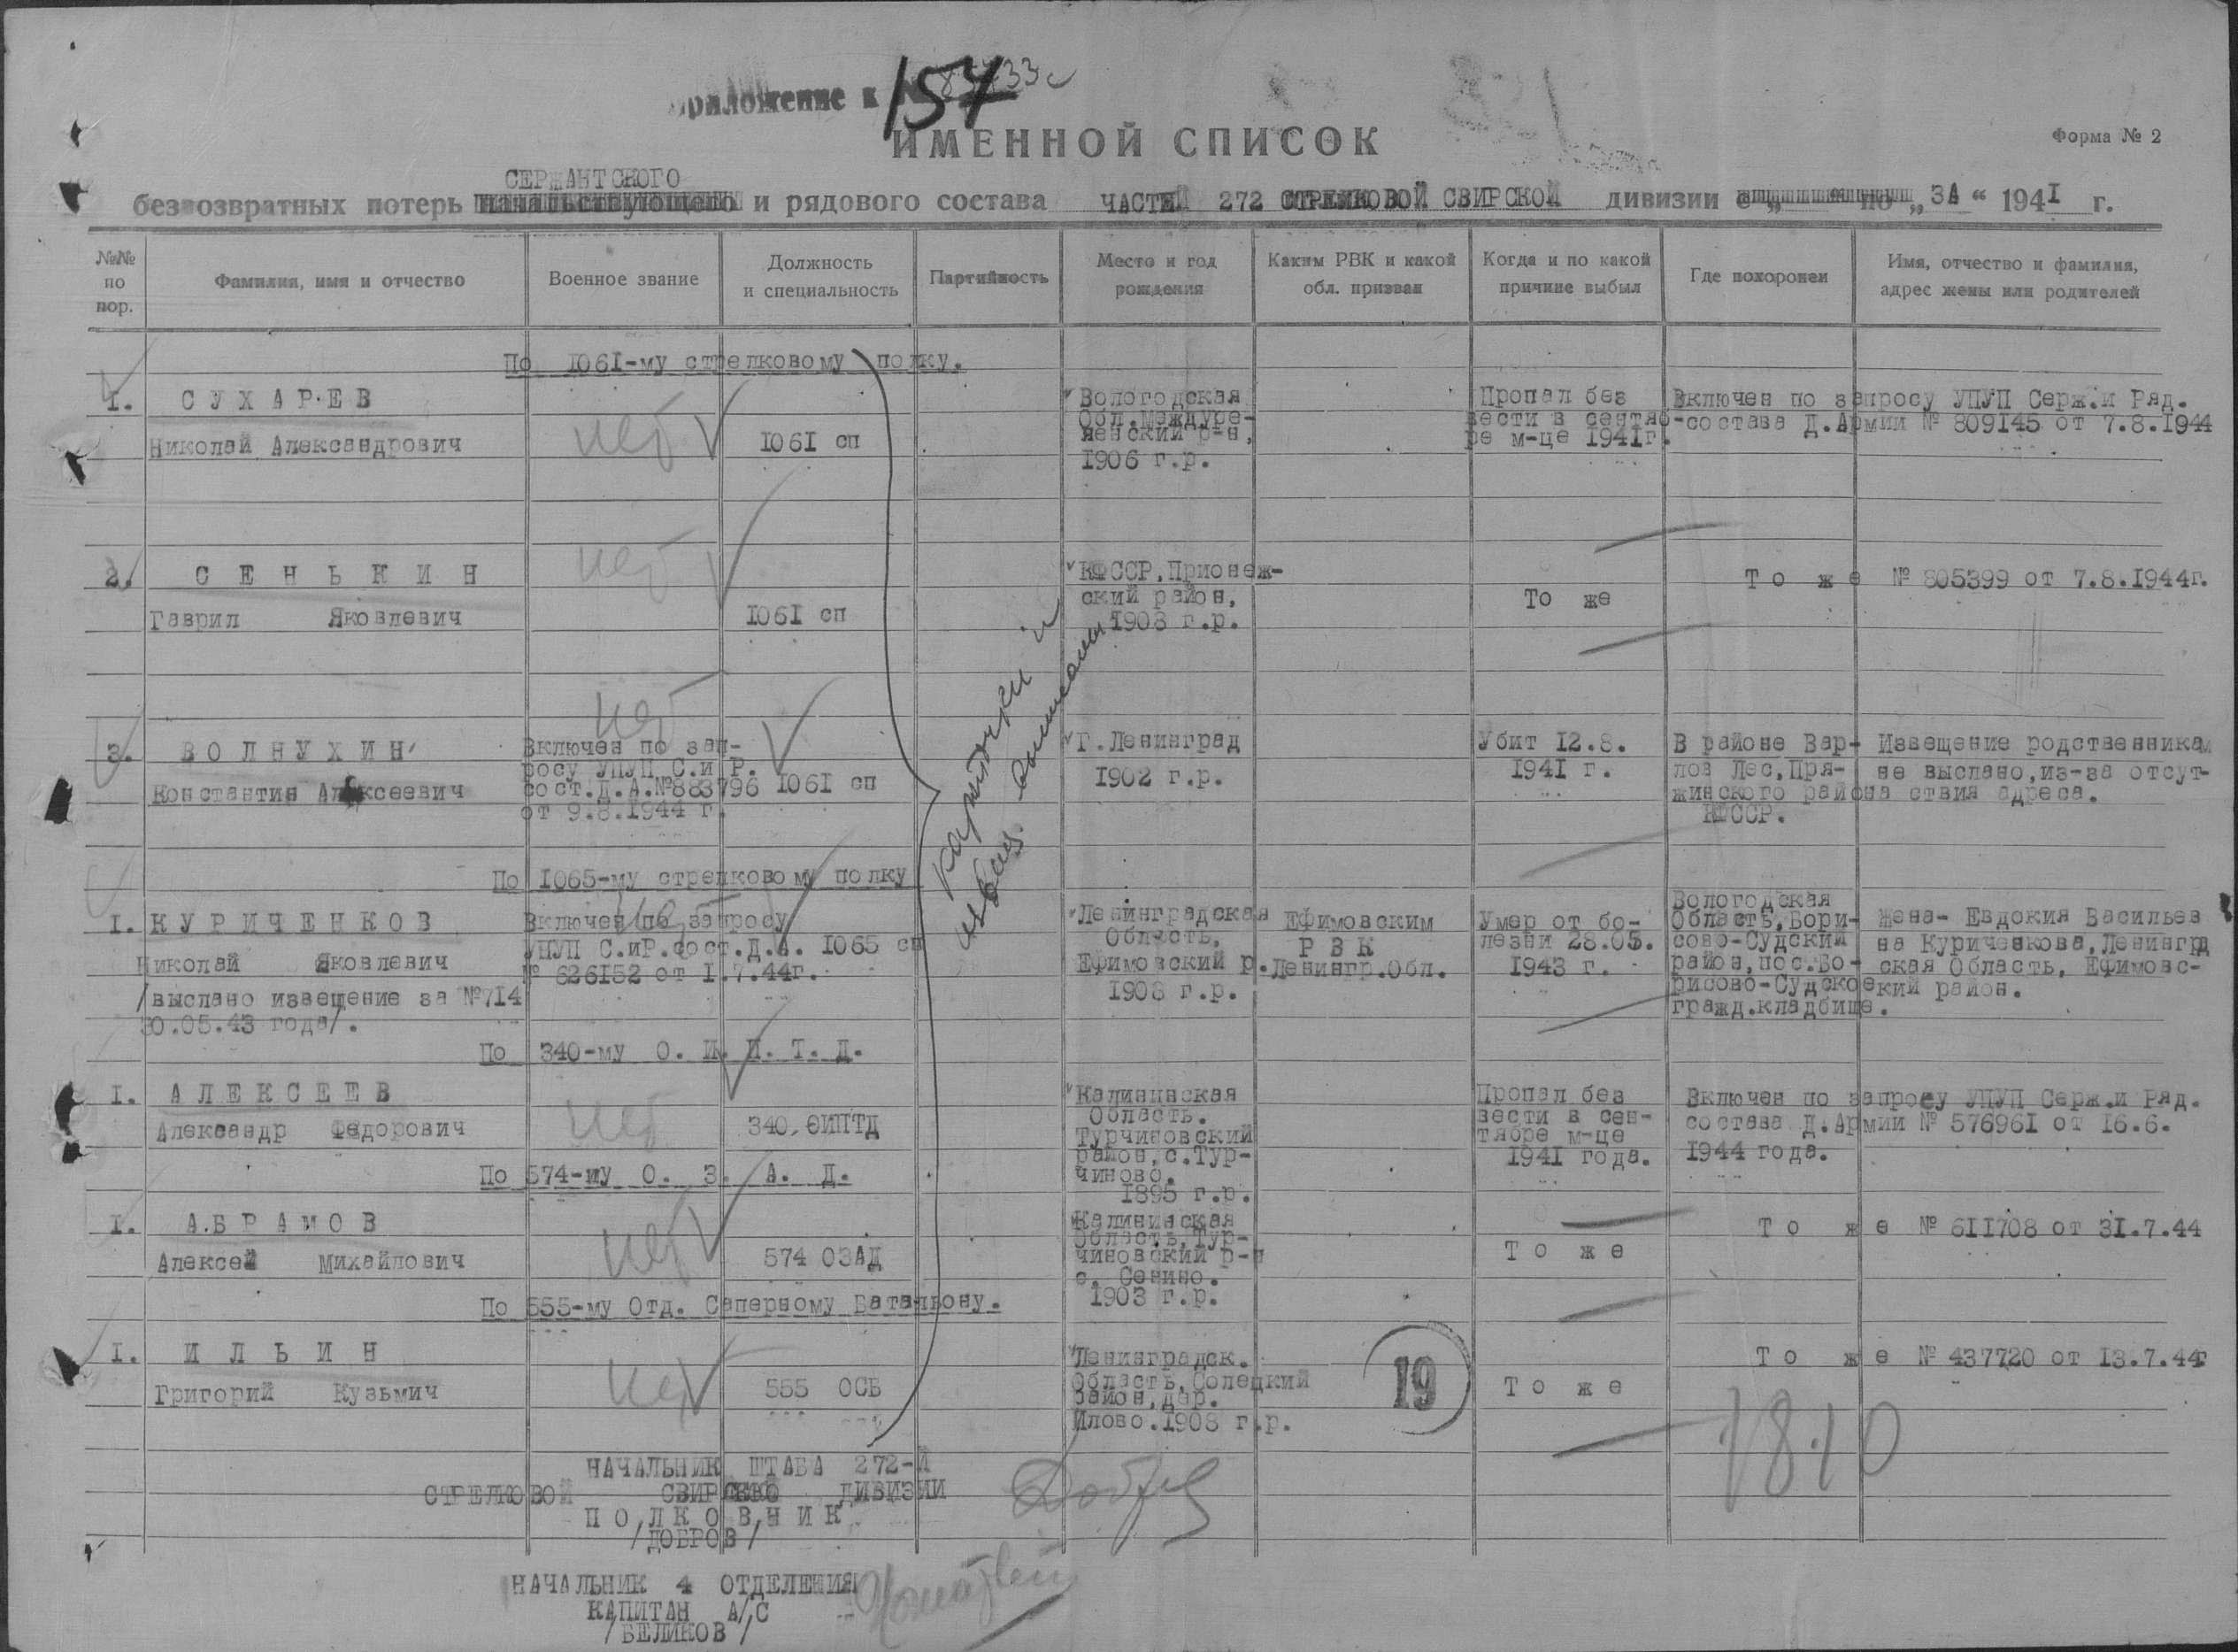 Приложение к № 157
ИМЕННОЙ СПИСОК
Форма № 2
СЕРЖАНТСКОГО
безвозвратных потерь начальствующего и рядового состава ЧАСТЕЙ 272 СТРЕЛКОВОЙ СВИРСКОЙ дивизии с „ по „ ЗА “ 194I г.
№№ по пор.
Фамилия, имя и отчество
Военное звание
Должность и специальность
Партийность
Место и год рождения
Каким РВК и какой обл. призван
Когда и по какой причине выбыл
Где похоронен
Имя, отчество и фамилия, адрес жены или родителей
По I06I-му стрелковому полку.
I. СУХАРЕВ
Николай Александрович
нет
I06I сп
Вологодская
Обл. Междуре-
ченский р-н,
I906 г.р.
Пропал без
вести в сентяб-
ре м-це 1941г.
Включен по запросу УПУП Серж.и Ряд.
состава Д.Армии № 809145 от 7.8.I944
2. СЕНЬКИН
Гаврил Яковлевич
нет
I06I сп
КФССР, Прионеж-
ский район,
I908 г.р.
То же
То же № 805399 от 7.8.I944г.
3. ВОЛНУХИН
Константин Алексеевич
нет
Включен по зап-
росу УПУП С.и Р.
сост.Д.А.№883796
от 9.8.I944 г.
I06I сп
Г.Ленинград
I902 г.р.
Убит I2.8.
I94I г.
В районе Вар-
лов Лес, Пря-
жинского района
КФССР.
Извещение родственникам
не выслано, из-за отсут-
ствия адреса.
карточки и
извещ. выписаны
По I065-му стрелковому полку
I. КУРИЧЕНКОВ
Николай Яковлевич
/выслано извещение за №7I4
30.05.43 года/.
нет
Включен по запросу
УПУП С.иР.сост.Д.А.
№ 626I52 от I.7.44г.
I065 сп
Ленинградская
Область,
Ефимовский р.
I908 г.р.
Ефимовским
РВК
Ленингр.Обл.
Умер от бо-
лезни 28.05.
I943 г.
Вологодская
Область, Бори-
сово-Судский
район, пос.Бо-
рисово-Судское
гражд.кладбище.
Жена- Евдокия Васильев
на Куриченкова, Ленингрд
ская Область, Ефимовс-
кий район.
По 340-му О. И. П. Т. Д.
I. АЛЕКСЕЕВ
Александр Федорович
нет
340 ОИПТД
Калининская
Область.
Турчиновский
район, с.Тур-
чиново.
I895 г.р.
Пропал без
вести в сен-
тябре м-це
I94I года.
Включен по запросу УПУП Серж.и Ряд.
состава Д.Армии № 57696I от I6.6.
I944 года.
По 574-му О. З. А. Д.
I. АБРАМОВ
Алексей Михайлович
нет
574 ОЗАД
Калининская
Область, Тур-
чиновский р-н
с. Сенино.
I903 г.р.
То же
То же № 6II708 от 3I.7.44
По 555-му Отд. Саперному Батальону.
I. ИЛЬИН
Григорий Кузьмич
нет
555 ОСБ
Ленинградск.
Область, Солецкий
район, дер.
Илово. I908 г.р.
19
То же
То же № 437720 от I3.7.44г
НАЧАЛЬНИК ШТАБА 272-Й
СТРЕЛКОВОЙ СВИРСКОЙ ДИВИЗИИ
ПОЛКОВНИК
/ДОБРОВ/
НАЧАЛЬНИК 4 ОТДЕЛЕНИЯ
КАПИТАН А/С
/БЕЛИКОВ/